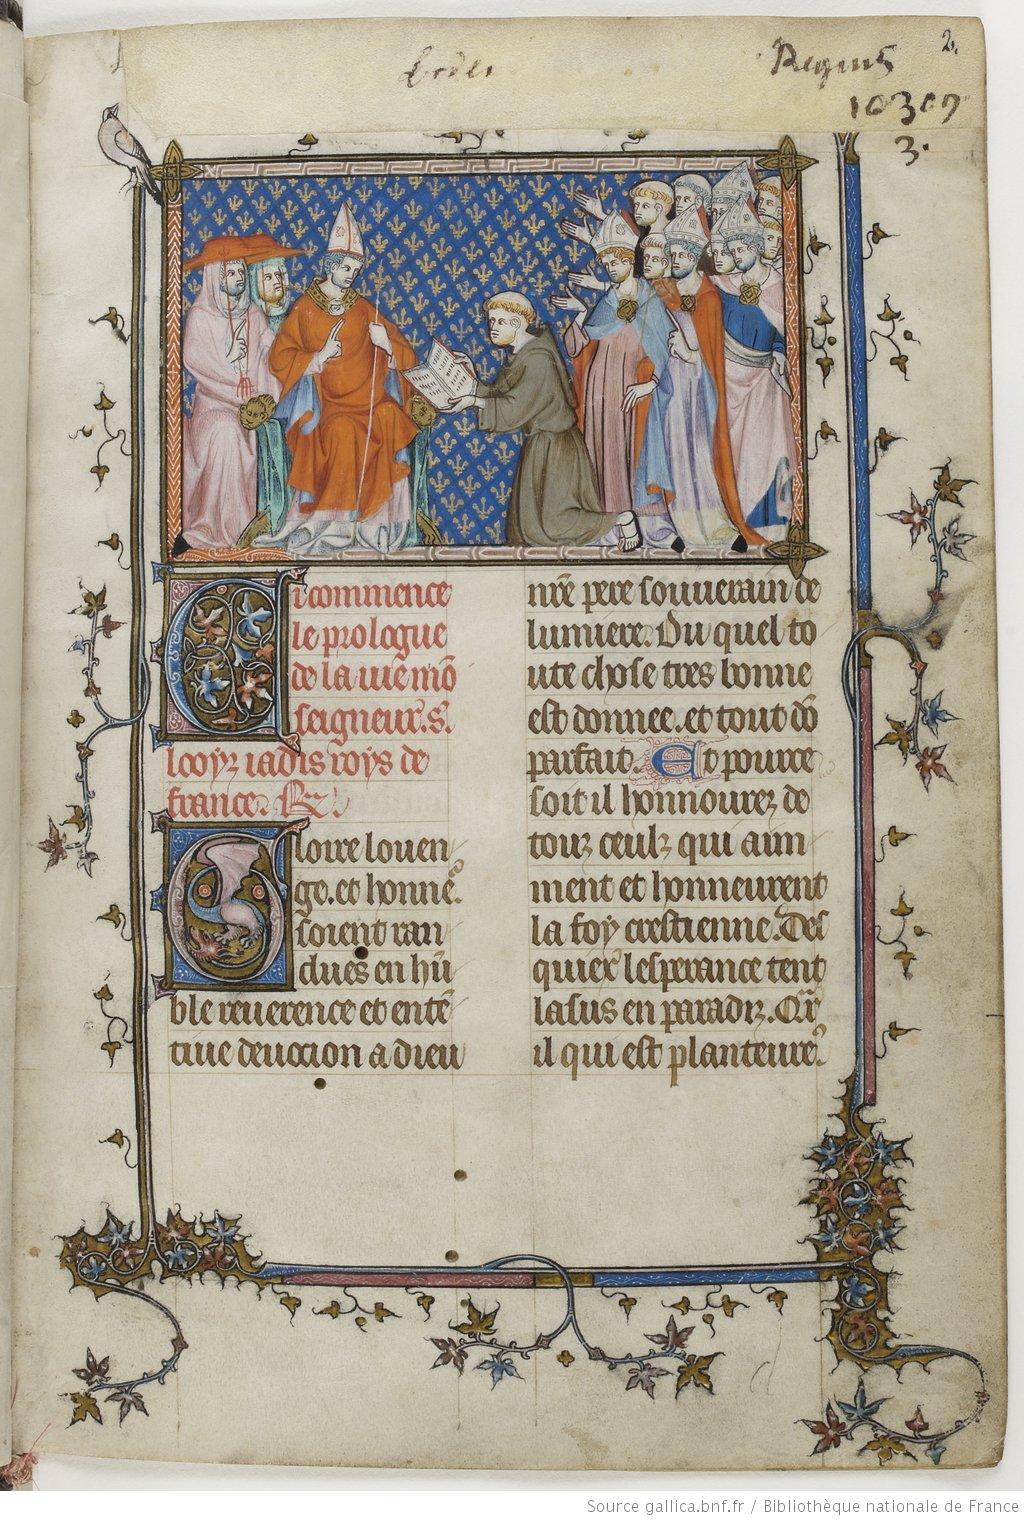 2.
Regius
10309
3.
Ci commence
le prologue
de la vie mō
seigneur .s.
looys iadis roys de
france. R̃
Gloire louen
ge. et honne᷑.
soient ran
dues en hū
ble reuerence et entē
tiue deuocion a dieu
nr̃e pere souuerain de
lumiere. Du quel to
ute chose tres bonne
est donnee. et tout dō
parfait. Et pource
soit il honnourez de
touz ceulz qui aim
ment et honneurent
la foy crestienne. Des
quiex lesperance tent
lasus en paradiz. Car
il qui est planteure᷑
Source gallica.bnf.fr / Bibliothèque nationale de France